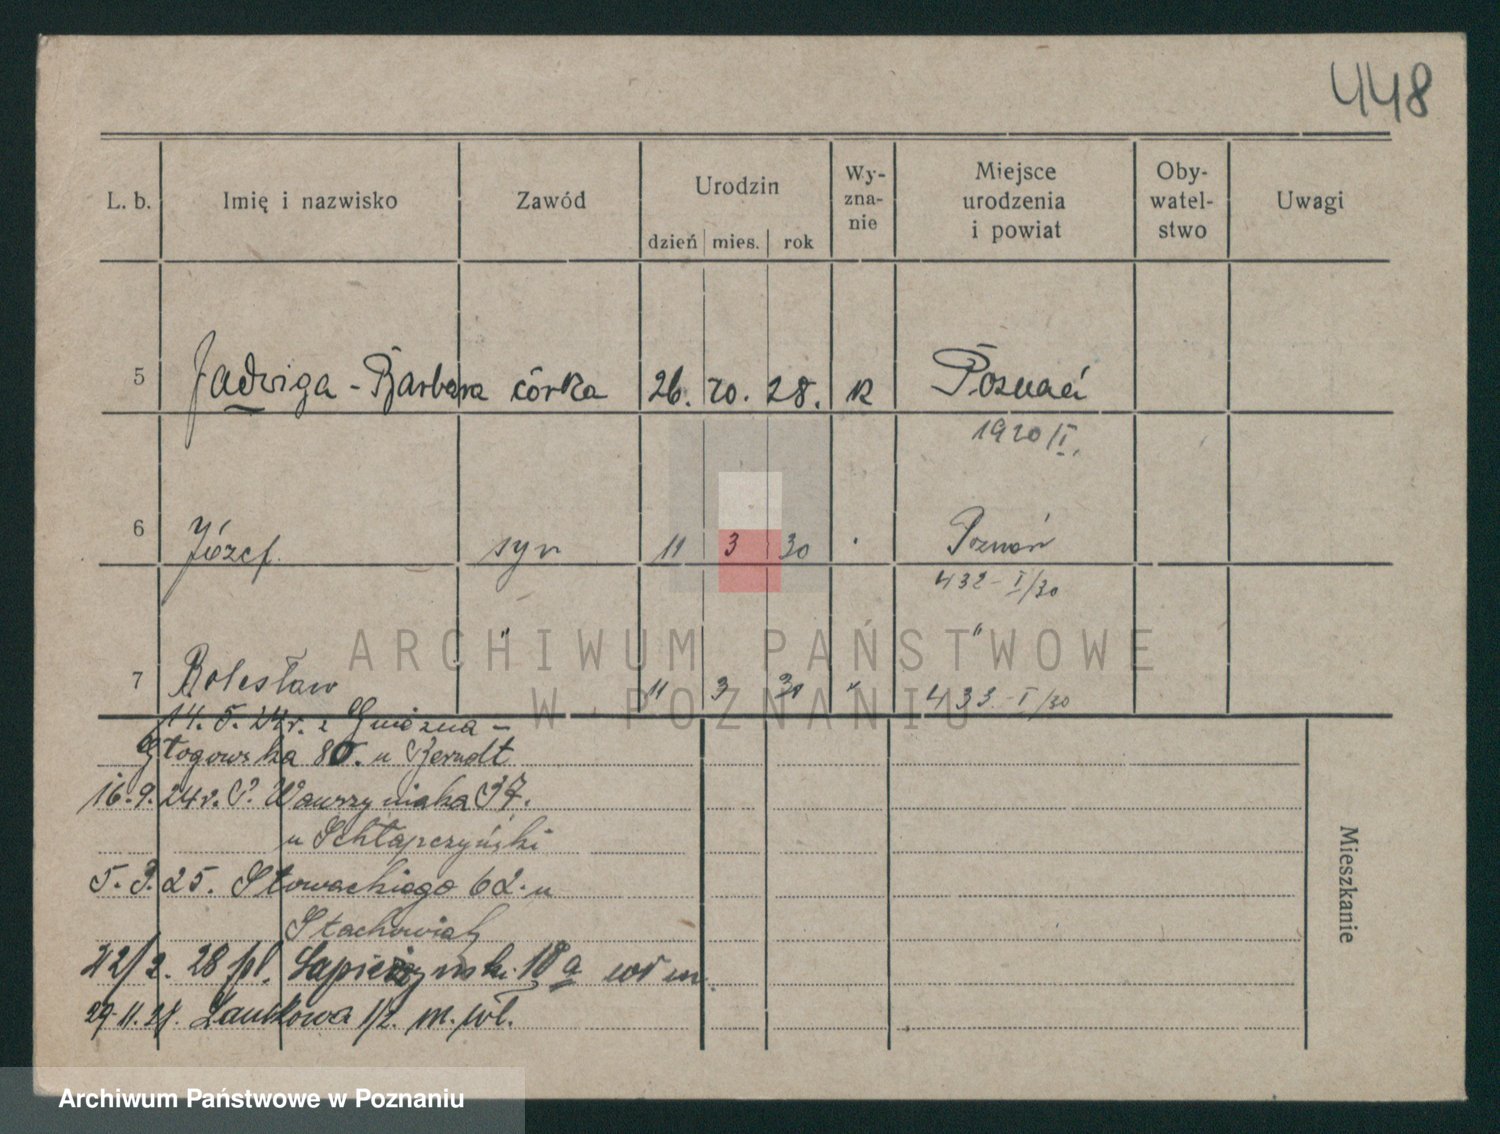 448
L. b. Imię i nazwisko Zawód Urodzin dzień mies. rok Wy-zna-nie Miejsce urodzenia i powiat Oby-watel-stwo Uwagi
5 Jadwiga - Barbara córka 26. 10. 28. R Poznań
1920/I.
6 Józef. syn 11 3 30 Poznań
432-I/30
7 Bolesław " 11 3 30 " "
433-I/30
14. 5. 24r. z Gniezna -
Głogowska 80. u Berndt
16. 9. 24r. P. Wawrzyniaka 37.
u Schłapczyński
5. 3. 25. Słowackiego 62. u
Stachowiak
22/2. 28 pl. Sapieżyński. 10a
29. 11. 28. Łąkowa 1/2. m. wł.
Mieszkanie
ARCHIWUM PAŃSTWOWE
W POZNANIU
Archiwum Państwowe w Poznaniu